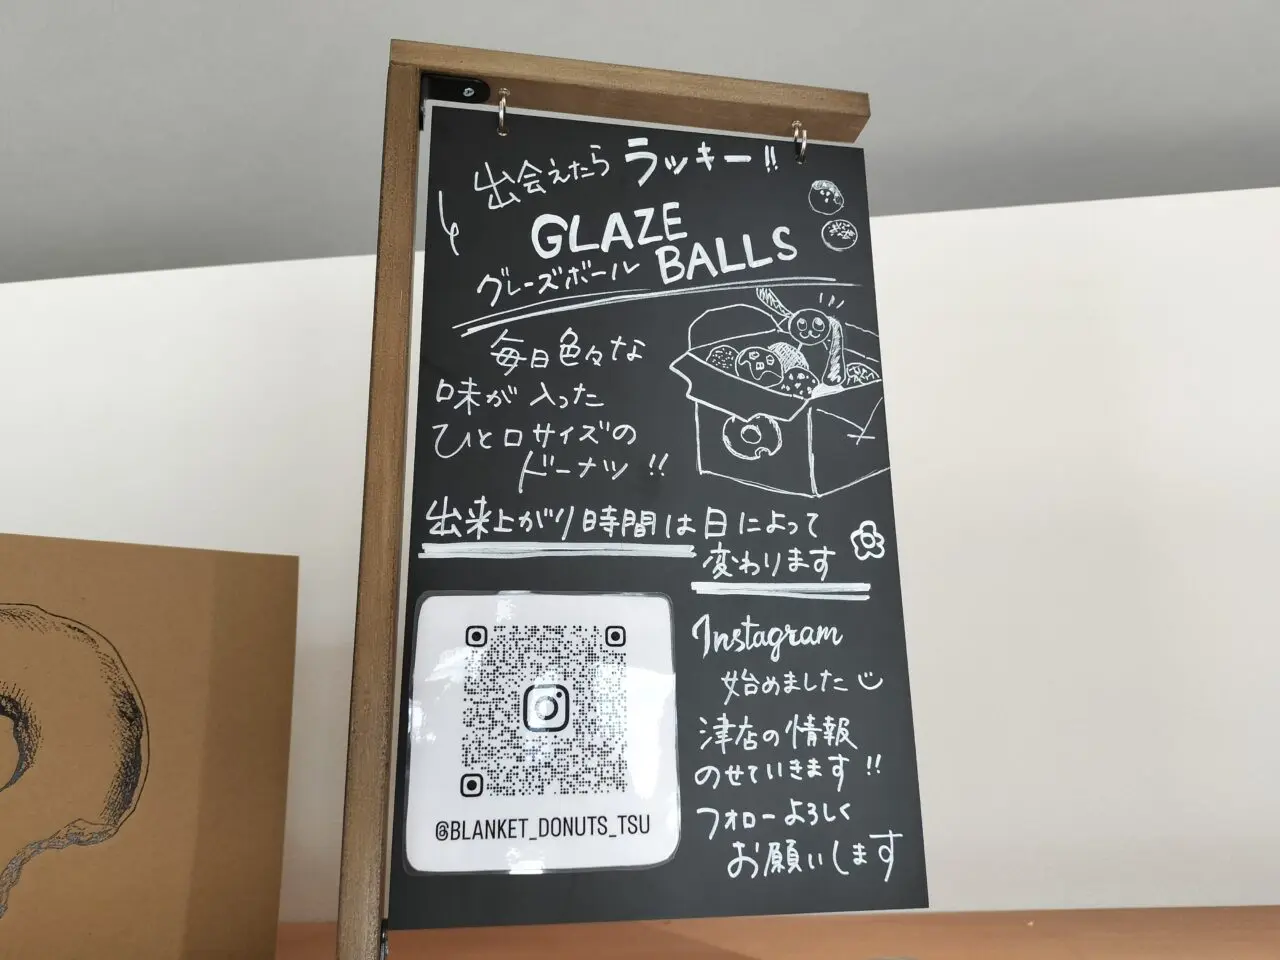 出会えたらラッキー!!
GLAZE
BALLS
グレーズボール
毎日色々な
味が入った
ひと口サイズの
ドーナツ!!
出来上がり時間は日によって
変わります
@BLANKET_DONUTS_TSU
Instagram
始めました
津店の情報
のせていきます!!
フォローよろしく
お願いします